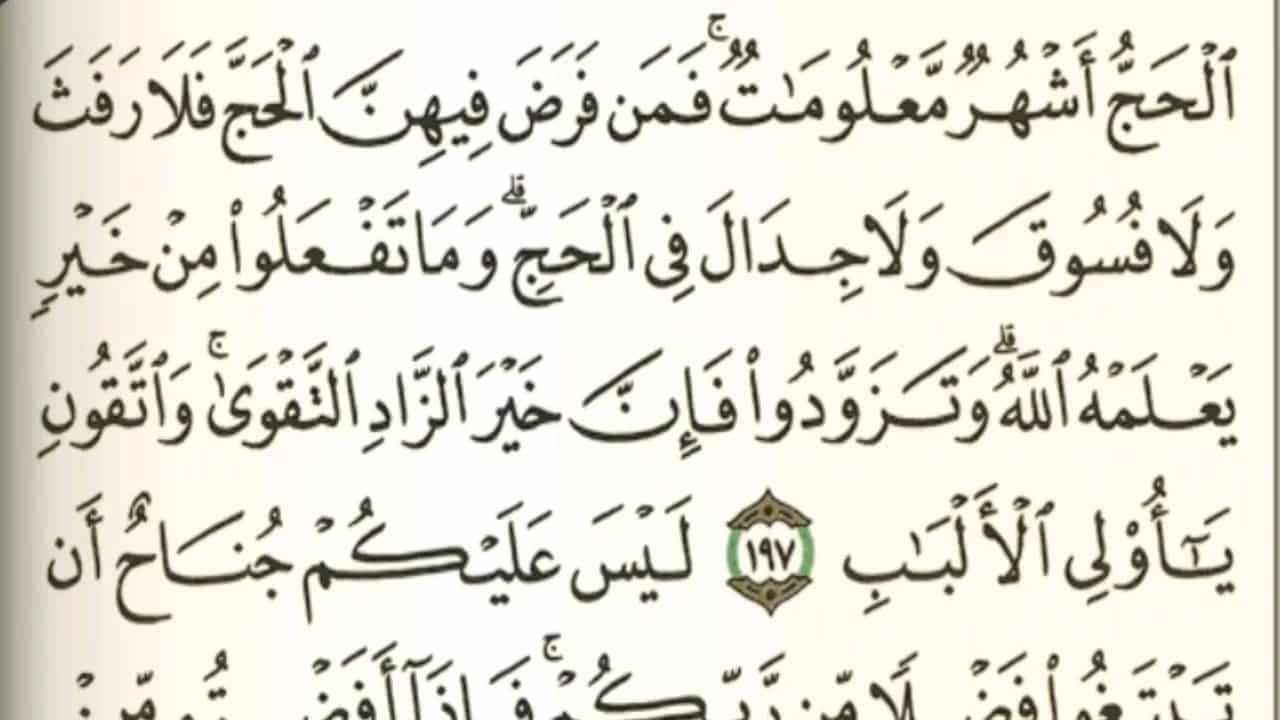 ٱلۡحَجُّ أَشۡهُرٞ مَّعۡلُومَٰتٞۚ فَمَن فَرَضَ فِيهِنَّ ٱلۡحَجَّ فَلَا رَفَثَ
وَلَا فُسُوقَ وَلَا جِدَالَ فِي ٱلۡحَجِّۗ وَمَا تَفۡعَلُواْ مِنۡ خَيۡرٖ
يَعۡلَمۡهُ ٱللَّهُۗ وَتَزَوَّدُواْ فَإِنَّ خَيۡرَ ٱلزَّادِ ٱلتَّقۡوَىٰۚ وَٱتَّقُونِ
يَٰٓأُوْلِي ٱلۡأَلۡبَٰبِ ١٩٧ لَيۡسَ عَلَيۡكُمۡ جُنَاحٌ أَن
تَبۡتَغُواْ فَضۡلٗا مِّن رَّبِّكُمۡۚ فَإِذَآ أَفَضۡتُم مِّنۡ